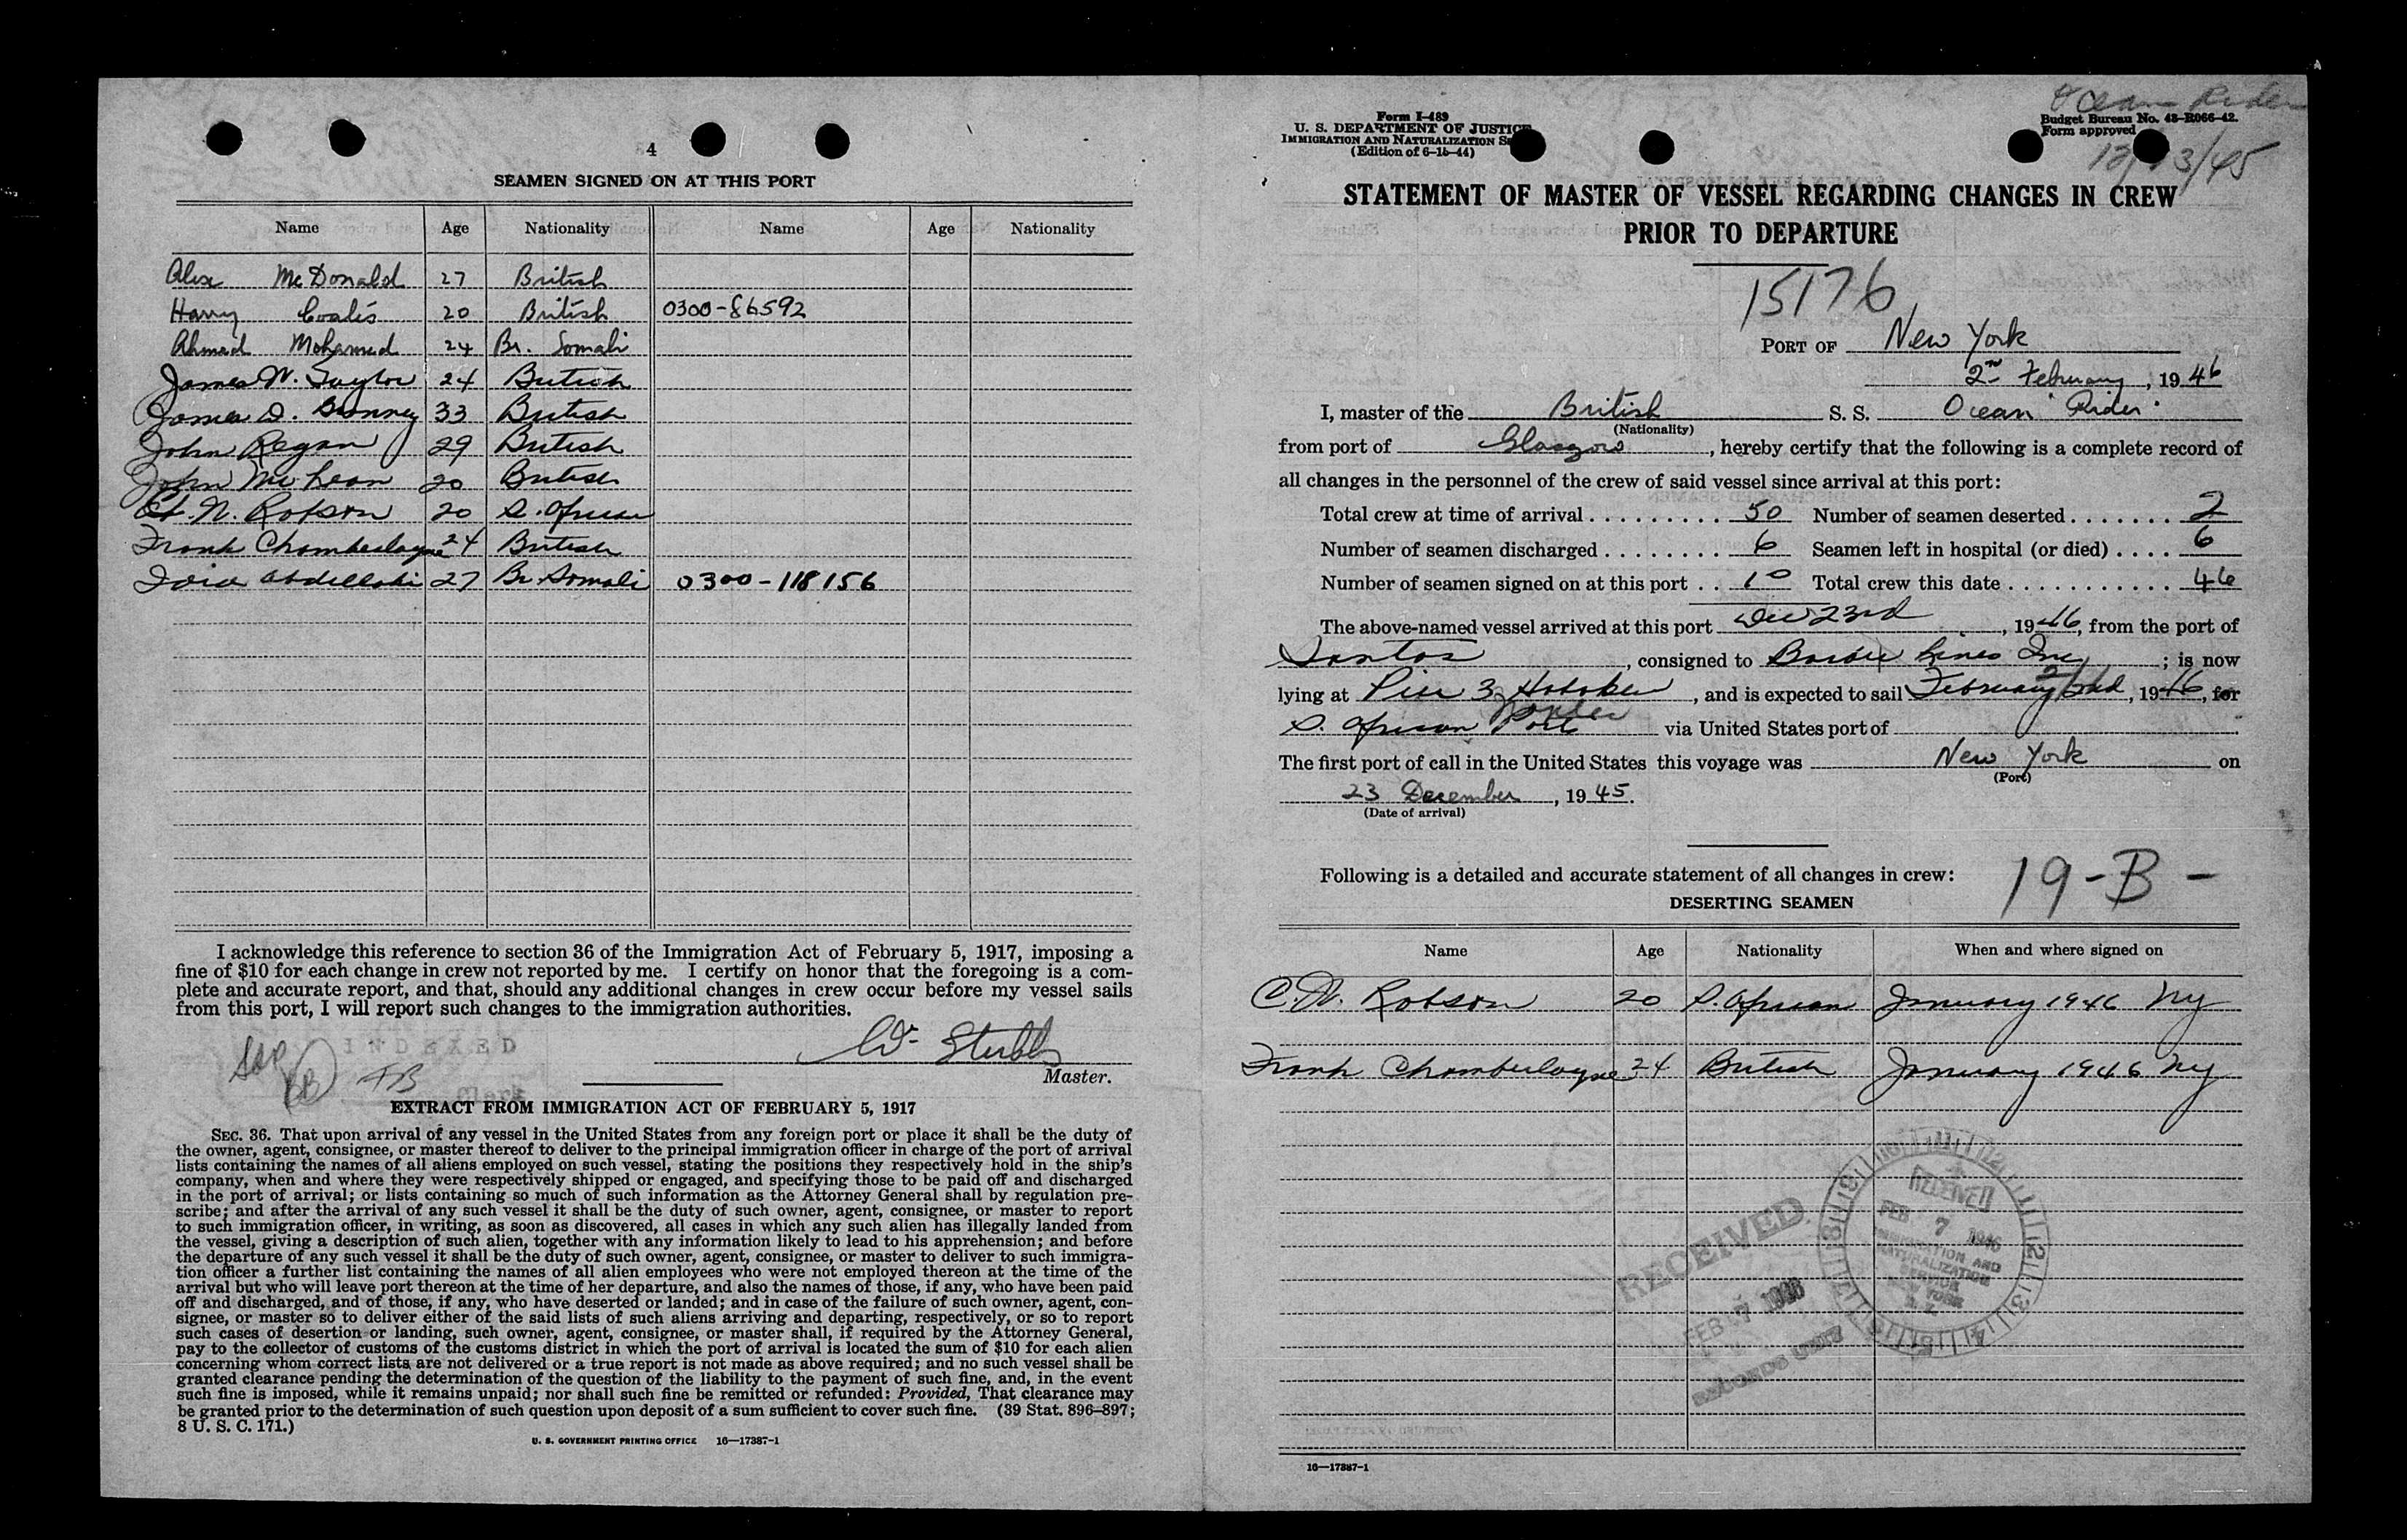 4
SEAMEN SIGNED ON AT THIS PORT
Name Age Nationality Name Age Nationality
Alex McDonald 27 British
Harry Coates 20 British 0300-86592
Ahmed Mohamed 24 Br. Somali
James W. Taylor 24 British
James D. Bonney 33 British
John Regan 29 British
John McLean 20 British
C. N. Robson 20 S. African
Frank Chamberlayne 24 British
Abdellahi 27 Br. Somali 0300-118156
I acknowledge this reference to section 36 of the Immigration Act of February 5, 1917, imposing a
fine of $10 for each change in crew not reported by me. I certify on honor that the foregoing is a com-
plete and accurate report, and that, should any additional changes in crew occur before my vessel sails
from this port, I will report such changes to the immigration authorities.
INDEXED
Wm Stubbs
FB
Master.
EXTRACT FROM IMMIGRATION ACT OF FEBRUARY 5, 1917
SEC. 36. That upon arrival of any vessel in the United States from any foreign port or place it shall be the duty of
the owner, agent, consignee, or master thereof to deliver to the principal immigration officer in charge of the port of arrival
lists containing the names of all aliens employed on such vessel, stating the positions they respectively hold in the ship's
company, when and where they were respectively shipped or engaged, and specifying those to be paid off and discharged
in the port of arrival; or lists containing so much of such information as the Attorney General shall by regulation pre-
scribe; and after the arrival of any such vessel it shall be the duty of such owner, agent, consignee, or master to report
to such immigration officer, in writing, as soon as discovered, all cases in which any such alien has illegally landed from
the vessel, giving a description of such alien, together with any information likely to lead to his apprehension; and before
the departure of any such vessel it shall be the duty of such owner, agent, consignee, or master to deliver to such immigra-
tion officer a further list containing the names of all alien employees who were not employed thereon at the time of the
arrival but who will leave port thereon at the time of her departure, and also the names of those, if any, who have been paid
off and discharged, and of those, if any, who have deserted or landed; and in case of the failure of such owner, agent, con-
signee, or master so to deliver either of the said lists of such aliens arriving and departing, respectively, or so to report
such cases of desertion or landing, such owner, agent, consignee, or master shall, if required by the Attorney General,
pay to the collector of customs of the customs district in which the port of arrival is located the sum of $10 for each alien
concerning whom correct lists are not delivered or a true report is not made as above required; and no such vessel shall be
granted clearance pending the determination of the question of the liability to the payment of such fine, and, in the event
such fine is imposed, while it remains unpaid; nor shall such fine be remitted or refunded: Provided, That clearance may
be granted prior to the determination of such question upon deposit of a sum sufficient to cover such fine. (39 Stat. 896-897;
8 U. S. C. 171.)
U. S. GOVERNMENT PRINTING OFFICE 16—17387-1
Ocean Rider
Form I-489
U. S. DEPARTMENT OF JUSTICE
IMMIGRATION AND NATURALIZATION
(Edition of 6-15-44)
Budget Bureau No. 43-R066-42.
Form approved
STATEMENT OF MASTER OF VESSEL REGARDING CHANGES IN CREW
PRIOR TO DEPARTURE
15176
PORT OF New York
2nd February, 1946
I, master of the British S. S. "Ocean Rider"
(Nationality)
from port of Glasgow, hereby certify that the following is a complete record of
all changes in the personnel of the crew of said vessel since arrival at this port:
Total crew at time of arrival . . . . . . . . . . 50 Number of seamen deserted . . . . . . . 2
Number of seamen discharged . . . . . . . . 6 Seamen left in hospital (or died) . . . . 6
Number of seamen signed on at this port . . 10 Total crew this date . . . . . . . . . . . . 46
The above-named vessel arrived at this port Dec 23rd, 1946, from the port of
Santos, consigned to Barber Lines Inc; is now
lying at Pier 3 Hoboken, and is expected to sail February 2nd, 1946, for
S. African Ports via United States port of
The first port of call in the United States this voyage was New York on
(Port)
23 December, 1945.
(Date of arrival)
Following is a detailed and accurate statement of all changes in crew:
19-B-
DESERTING SEAMEN
Name Age Nationality When and where signed on
C. N. Robson 20 S. African January 1946 NY
Frank Chamberlayne 24 British January 1946 NY
RECEIVED
FEB 7 1946
RECORDS UNIT
RECEIVED
FEB 7 1946
IMMIGRATION AND
NATURALIZATION
SERVICE
NEW YORK
N. Y.
16—17387-1